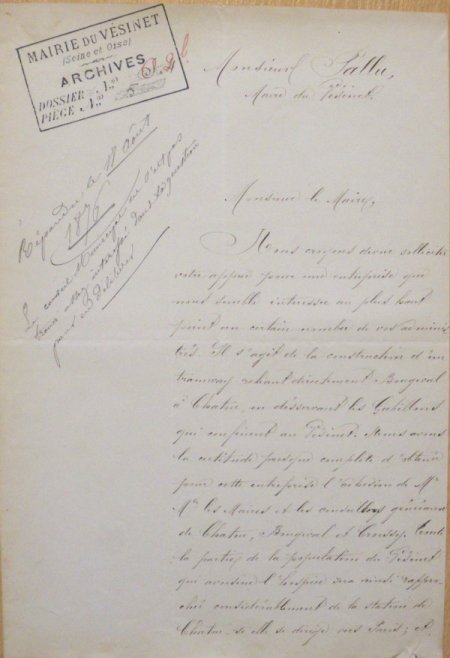 MAIRIE DU VÉSINET
(Seine et Oise)
ARCHIVES
DOSSIER N°
PIÈCE N°
Monsieur Pallu,
Maire du Vésinet.
Répondu le 18 Août
1876
Le conseil Municipal ne s'est pas
trouvé assez
pour en délibérer
Monsieur le Maire,
Nous croyons devoir solliciter
votre appui pour une entreprise qui
nous semble intéresser au plus haut
point un certain nombre de vos adminis
trés. Il s'agit de la construction d'un
tramway reliant directement Bougival
à Chatou, en desservant les Gabillons
qui confinent au Vésinet. Nous avons
la certitude presque complète d'obtenir
pour cette entreprise l'adhésion de M
M les Maires et les conseillers généraux
de Chatou, Bougival et Croissy. Toute
la partie de la population du Vésinet
qui avoisine l'hospice sera ainsi rappro
chée considérablement de la station de
Chatou, si elle se dirige vers Paris; et